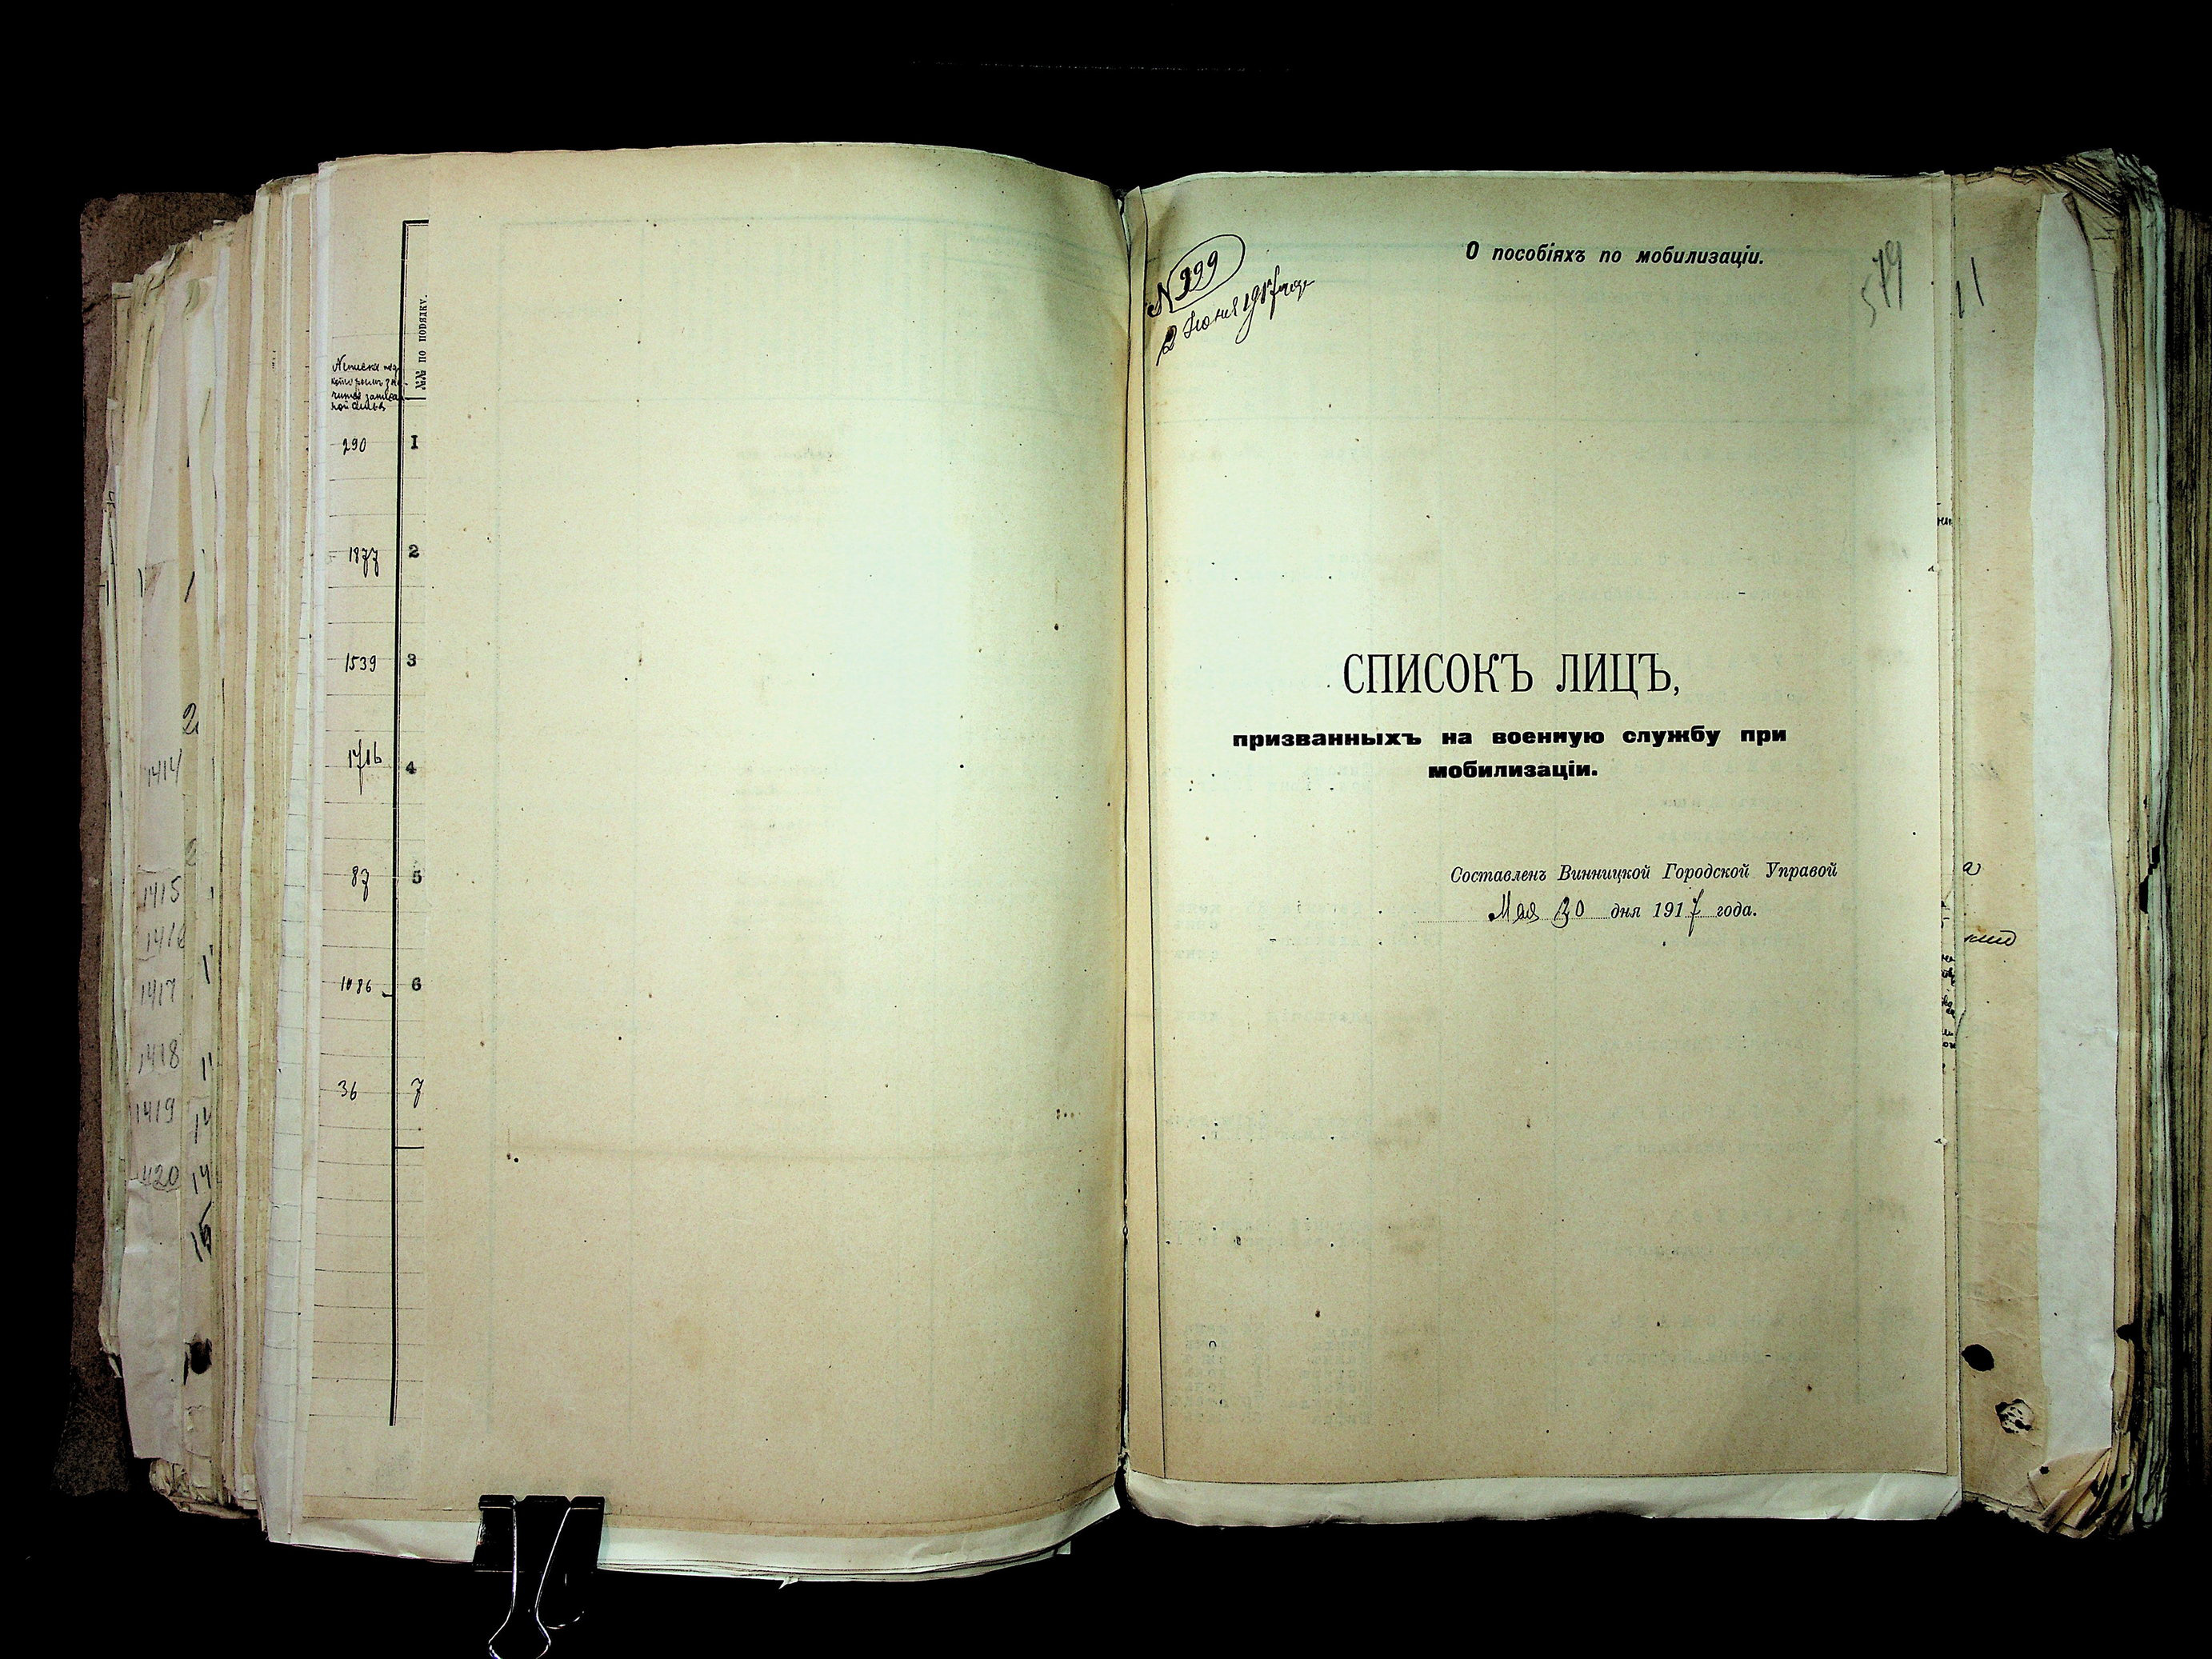 №№ по порядку.
290 1
1877 2
1539 3
1716 4
87 5
1086 6
36 7
1414
1415
1416
1417
1418
1419
1420
N 999
2 Июня 1917 года
О пособіяхъ по мобилизаціи.
579
СПИСОКЪ ЛИЦЪ,
призванныхъ на военную службу при
мобилизаціи.
Составленъ Винницкой Городской Управой
Мая 30 дня 1917 года.